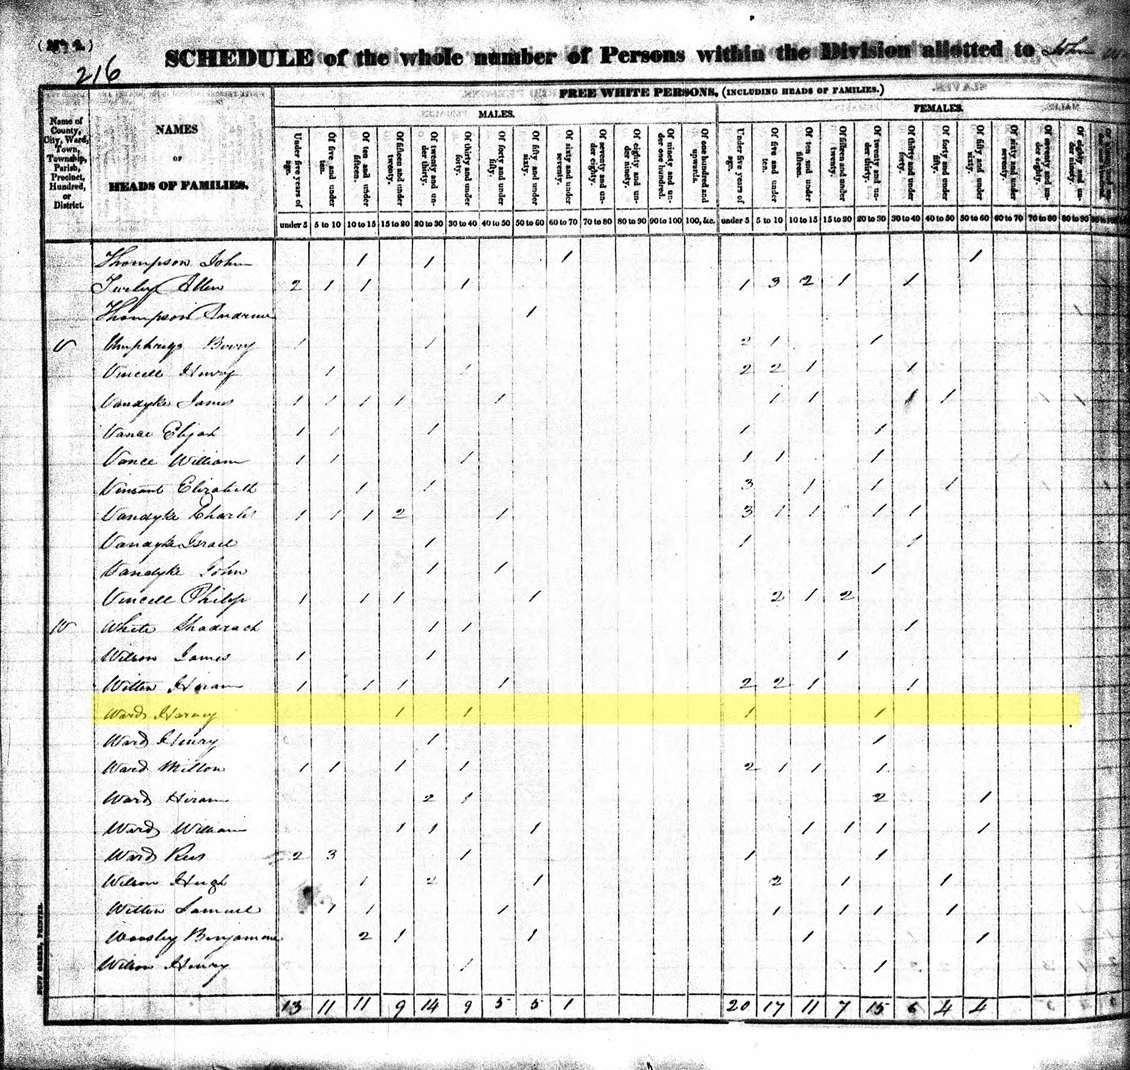 (No 4.)
216
SCHEDULE of the whole number of Persons within the Division allotted to John
FREE WHITE PERSONS, (INCLUDING HEADS OF FAMILIES.)
Name of County, City, Ward, Town, Township, Parish, Precinct, Hundred, or District.
NAMES
OF
HEADS OF FAMILIES.
MALES. FEMALES.
Under five years of age. Of five and under ten. Of ten and under fifteen. Of fifteen and under twenty. Of twenty and under thirty. Of thirty and under forty. Of forty and under fifty. Of fifty and under sixty. Of sixty and under seventy. Of seventy and under eighty. Of eighty and under ninety. Of ninety and under one hundred. Of one hundred and upwards. Under five years of age. Of five and under ten. Of ten and under fifteen. Of fifteen and under twenty. Of twenty and under thirty. Of thirty and under forty. Of forty and under fifty. Of fifty and under sixty. Of sixty and under seventy. Of seventy and under eighty. Of eighty and under ninety.
under 5 5 to 10 10 to 15 15 to 20 20 to 30 30 to 40 40 to 50 50 to 60 60 to 70 70 to 80 80 to 90 90 to 100 100, &c. under 5 5 to 10 10 to 15 15 to 20 20 to 30 30 to 40 40 to 50 50 to 60 60 to 70 70 to 80 80 to 90
Thompson John 1 1 1 1
Allen 2 1 1 1 1 3 2 1 1
Thompson 1
Umphreys 1 1 2 1 1
Vincell Henry 1 1 2 2 1 1
Vandyke James 1 1 1 1 1 1 1 1 1
Vance Elijah 1 1 1 1 1
Vance William 1 1 1 1 1 1
Vinsant Elizabeth 1 1 3 1 1 1
Vandyke Charles 1 1 1 2 1 3 1 1 1 1
Vandyke Israel 1 1 1
Vandyke John 1 1 1
Vincell Philip 1 1 1 1 2 1 2
White Shadrach 1 1 1
Wilson James 1 1 1
Witten Hiram 1 1 1 1 2 2 1 1
Ward Harvey 1 1 1 1
Ward Henry 1 1
Ward Milton 1 1 1 1 2 1 1 1
Ward Hiram 2 1 2 1
Ward William 1 1 1 1 1 1 1
Ward Rees 2 3 1 1 1
Wilson Hugh 1 2 1 2 1 1
Witten Samuel 1 1 1 1 1 1 1
Benjamin 2 1 1 1 1
Wilson Henry 1 1
13 11 11 9 14 9 5 5 1 20 17 11 7 15 6 4 4